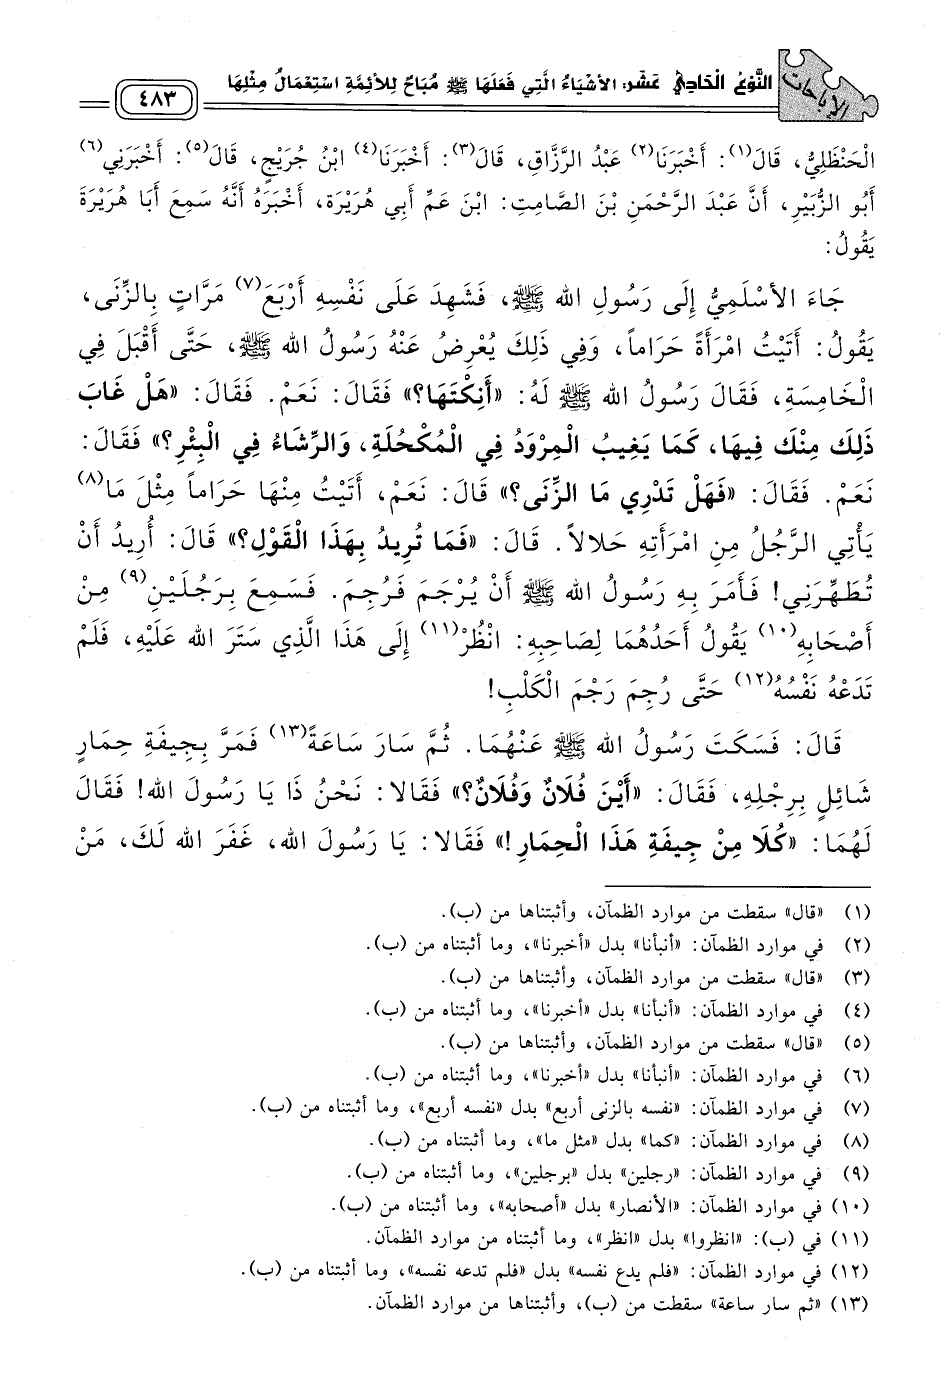 الإباحات
النَّوْعُ الْحَادِي عَشَرَ: الأَشْيَاءُ الَّتِي فَعَلَهَا ﷺ مُبَاحٌ لِلأَئِمَّةِ اسْتِعْمَالُ مِثْلِهَا
٤٨٣
الْحَنْظَلِيُّ، قَالَ(١): أَخْبَرَنَا(٢) عَبْدُ الرَّزَّاقِ، قَالَ(٣): أَخْبَرَنَا(٤) ابْنُ جُرَيْجٍ، قَالَ(٥): أَخْبَرَنِي(٦)
أَبُو الزُّبَيْرِ، أَنَّ عَبْدَ الرَّحْمَنِ بْنَ الصَّامِتِ: ابْنَ عَمِّ أَبِي هُرَيْرَةَ، أَخْبَرَهُ أَنَّهُ سَمِعَ أَبَا هُرَيْرَةَ
يَقُولُ:
جَاءَ الأَسْلَمِيُّ إِلَى رَسُولِ الله ﷺ، فَشَهِدَ عَلَى نَفْسِهِ أَرْبَعَ(٧) مَرَّاتٍ بِالزِّنَى،
يَقُولُ: أَتَيْتُ امْرَأَةً حَرَاماً، وَفِي ذَلِكَ يُعْرِضُ عَنْهُ رَسُولُ الله ﷺ، حَتَّى أَقْبَلَ فِي
الْخَامِسَةِ، فَقَالَ رَسُولُ الله ﷺ لَهُ: «أَنِكْتَهَا؟» فَقَالَ: نَعَمْ. فَقَالَ: «هَلْ غَابَ
ذَلِكَ مِنْكَ فِيهَا، كَمَا يَغِيبُ الْمِرْوَدُ فِي الْمُكْحُلَةِ، وَالرِّشَاءُ فِي الْبِئْرِ؟» فَقَالَ:
نَعَمْ. فَقَالَ: «فَهَلْ تَدْرِي مَا الزِّنَى؟» قَالَ: نَعَمْ، أَتَيْتُ مِنْهَا حَرَاماً مِثْلَ مَا(٨)
يَأْتِي الرَّجُلُ مِنِ امْرَأَتِهِ حَلالاً. قَالَ: «فَمَا تُرِيدُ بِهَذَا الْقَوْلِ؟» قَالَ: أُرِيدُ أَنْ
تُطَهِّرَنِي! فَأَمَرَ بِهِ رَسُولُ الله ﷺ أَنْ يُرْجَمَ فَرُجِمَ. فَسَمِعَ بِرَجُلَيْنِ(٩) مِنْ
أَصْحَابِهِ(١٠) يَقُولُ أَحَدُهُمَا لِصَاحِبِهِ: انْظُرْ(١١) إِلَى هَذَا الَّذِي سَتَرَ الله عَلَيْهِ، فَلَمْ
تَدَعْهُ نَفْسُهُ(١٢) حَتَّى رُجِمَ رَجْمَ الْكَلْبِ!
قَالَ: فَسَكَتَ رَسُولُ الله ﷺ عَنْهُمَا. ثُمَّ سَارَ سَاعَةً(١٣) فَمَرَّ بِجِيفَةِ حِمَارٍ
شَائِلٍ بِرِجْلِهِ، فَقَالَ: «أَيْنَ فُلَانٌ وَفُلَانٌ؟» فَقَالا: نَحْنُ ذَا يَا رَسُولَ الله! فَقَالَ
لَهُمَا: «كُلَا مِنْ جِيفَةِ هَذَا الْحِمَارِ!» فَقَالا: يَا رَسُولَ الله، غَفَرَ الله لَكَ، مَنْ
(١) «قال» سقطت من موارد الظمآن، وأثبتناها من (ب).
(٢) في موارد الظمآن: «أنبأنا» بدل «أخبرنا»، وما أثبتناه من (ب).
(٣) «قال» سقطت من موارد الظمآن، وأثبتناها من (ب).
(٤) في موارد الظمآن: «أنبأنا» بدل «أخبرنا»، وما أثبتناه من (ب).
(٥) «قال» سقطت من موارد الظمآن، وأثبتناها من (ب).
(٦) في موارد الظمآن: «أنبأنا» بدل «أخبرنا»، وما أثبتناه من (ب).
(٧) في موارد الظمآن: «نفسه بالزنى أربع» بدل «نفسه أربع»، وما أثبتناه من (ب).
(٨) في موارد الظمآن: «كما» بدل «مثل ما»، وما أثبتناه من (ب).
(٩) في موارد الظمآن: «رجلين» بدل «برجلين»، وما أثبتناه من (ب).
(١٠) في موارد الظمآن: «الأنصار» بدل «أصحابه»، وما أثبتناه من (ب).
(١١) في (ب): «انظروا» بدل «انظر»، وما أثبتناه من موارد الظمآن.
(١٢) في موارد الظمآن: «فلم يدع نفسه» بدل «فلم تدعه نفسه»، وما أثبتناه من (ب).
(١٣) «ثم سار ساعة» سقطت من (ب)، وأثبتناها من موارد الظمآن.